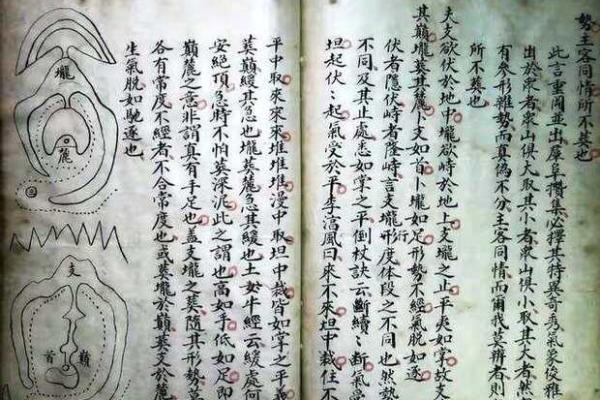 勢主客同情所不葬也
此言重岡並出羣阜攢集必擇其特異奇秀氣象俊雅
出於眾者眾山俱大取其小者眾山俱小取其大者然
有參形雜勢而真偽不分主客同情而爾我莫辨者則
所不葬也
夫支欲伏於地中壠欲峙於地上支壠之止平夷如掌故支
其巔壠葬其麓卜支如首卜壠如足形勢不經氣脫如逐
伏者隱伏峙者隆峙言支壠形行度體段之不同也然勢
不同及其止處悉如掌之平倒杖訣云斷續〻斷氣受
坦起伏〻起氣受於平李淳風曰來不來坦中裁住不
平中取來來來堆堆堆漫中取坦中裁皆如掌之平義
葬巔緩其急也壠葬麓急其緩也土女牛經云緩處何
安絕頂急時不怕葬深泥此之謂也高如手低如足即
巔麓之意非謂真有手足也蓋支壠之葬隨其形勢莫
各有常度不經者不合常度也或葬壠於巔葬支於麓
生氣脫如馳逐也
壠
麓
支
首 巔